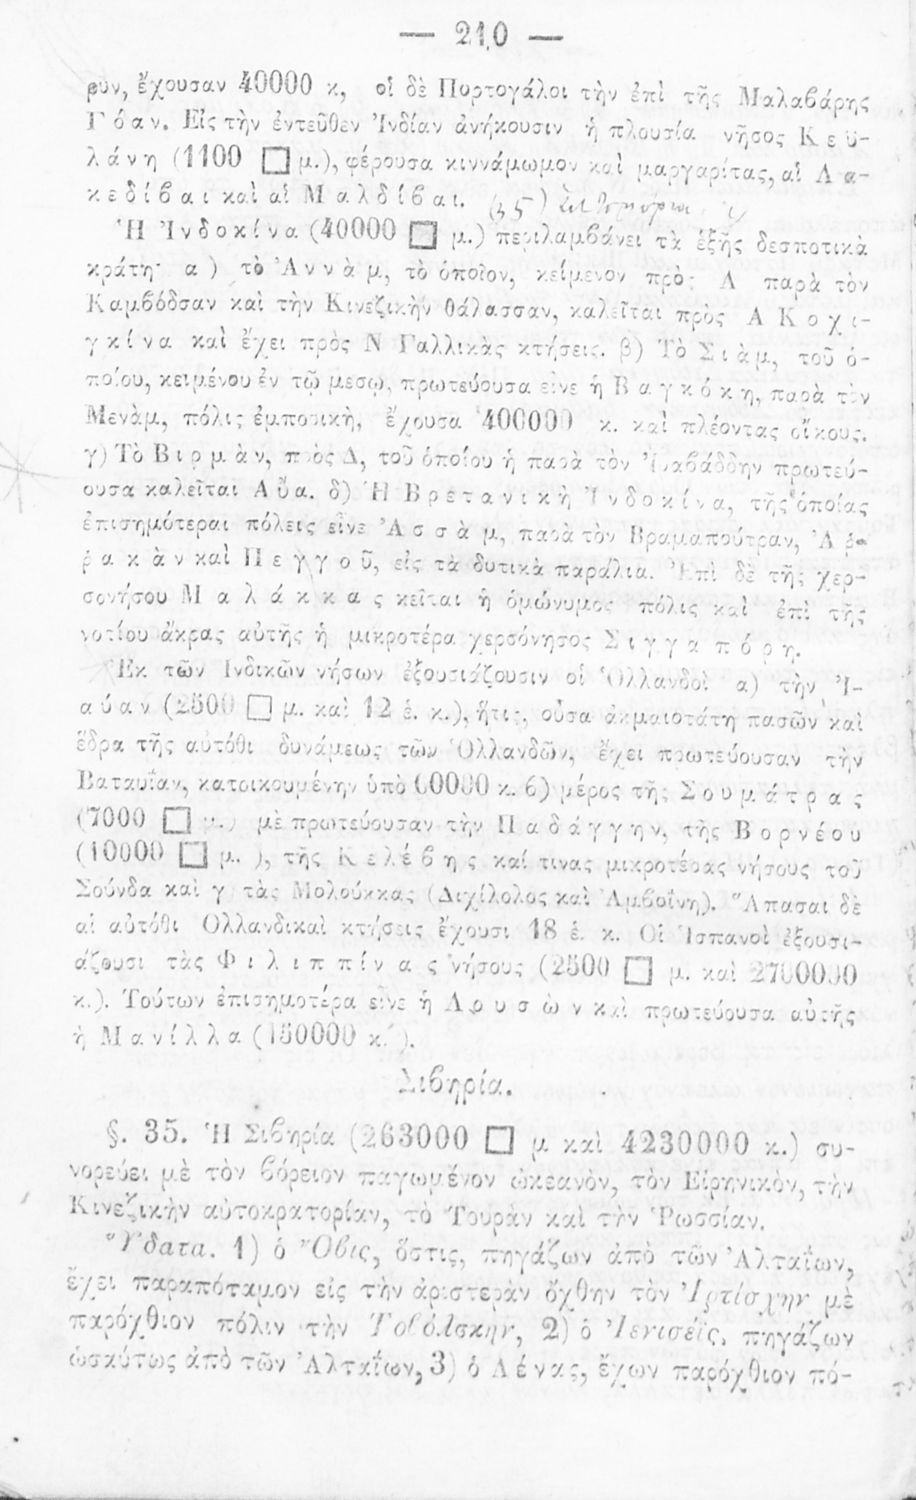 — 210 —
ρύν, ἔχουσαν 40000 κ, οἱ δὲ Πορτογάλοι τὴν ἐπὶ τῆς Μαλαβάρης
Γόαν. Εἰς τὴν ἐντεῦθεν Ἰνδίαν ἀνήκουσιν ἡ πλουσία νῆσος Κεϋ-
λάνη (1100 □ μ.), φέρουσα κιννάμωμον καὶ μαργαρίτας, αἱ Λα-
κεδίβαι καὶ αἱ Μαλδίβαι.
Ἡ Ἰνδοκίνα (40000 □ μ.) περιλαμβάνει τὰ ἑξῆς δεσποτικὰ
κράτη· α) τὸ Ἀννὰμ, τὸ ὁποῖον, κείμενον πρὸς Α παρὰ τὸν
Καμβόδσαν καὶ τὴν Κινεζικὴν θάλασσαν, καλεῖται πρὸς Α Κοχι-
γκίνα καὶ ἔχει πρὸς Ν Γαλλικὰς κτήσεις. β) Τὸ Σιὰμ, τοῦ ὁ-
ποίου, κειμένου ἐν τῷ μεσῳ, πρωτεύουσα εἶνε ἡ Βαγκόκη, παρὰ τὸν
Μενὰμ, πόλις ἐμπορικὴ, ἔχουσα 400000 κ. καὶ πλέοντας οἴκους.
γ) Τὸ Βιρμὰν, πρὸς Δ, τοῦ ὁποίου ἡ παρὰ τὸν Ἰραβάδδην πρωτεύ-
ουσα καλεῖται Αὔα. δ) Ἡ Βρετανικὴ Ἰνδοκίνα, τῆς ὁποίας
ἐπισημότεραι πόλεις εἶνε Ἀσσὰμ, παρὰ τὸν Βραμαπούτραν, Ἀρ-
ρακὰν καὶ Πεγγοῦ, εἰς τὰ δυτικὰ παράλια. Ἐπὶ δὲ τῆς χερ-
σονήσου Μαλάκκας κεῖται ἡ ὁμώνυμος πόλις καὶ ἐπὶ τῆς
νοτίου ἄκρας αὐτῆς ἡ μικροτέρα χερσόνησος Σιγγαπόρη.
Ἐκ τῶν Ἰνδικῶν νήσων ἐξουσιάζουσιν οἱ Ὁλλανδοὶ α) τὴν Ἰ-
αύαν (2500 □ μ. καὶ 12 ἑ. κ.), ἥτις, οὖσα ἀκμαιοτάτη πασῶν καὶ
ἕδρα τῆς αὐτόθι δυνάμεως τῶν Ὁλλανδῶν, ἔχει πρωτεύουσαν τὴν
Βαταυΐαν, κατοικουμένην ὑπὸ 60000 κ. β) μέρος τῆς Σουμάτρας
(7000 □ μ.) μὲ πρωτεύουσαν τὴν Παδάγγην, τῆς Βορνέου
(10000 □ μ. ), τῆς Κελέβης καί τινας μικροτέρας νήσους τοῦ
Σούνδα καὶ γ) τὰς Μολούκκας (Διχίλολος καὶ Ἀμβοΐνη). Ἅπασαι δὲ
αἱ αὐτόθι Ὁλλανδικαὶ κτήσεις ἔχουσι 18 ἑ. κ. Οἱ Ἱσπανοὶ ἐξουσι-
άζουσι τὰς Φιλιππίνας νήσους (2500 □ μ. καὶ 2700000
κ.). Τούτων ἐπισημοτέρα εἶνε ἡ Λουσὼν καὶ πρωτεύουσα αὐτῆς
ἡ Μανίλλα (150000 κ.).
Σιβηρία.
§. 35. Ἡ Σιβηρία (263000 □ μ καὶ 4230000 κ.) συ-
νορεύει μὲ τὸν βόρειον παγωμένον ὠκεανὸν, τὸν Εἰρηνικὸν, τὴν
Κινεζικὴν αὐτοκρατορίαν, τὸ Τουρὰν καὶ τὴν Ῥωσσίαν.
Ὕδατα. 1) ὁ Ὄβις, ὅστις, πηγάζων ἀπὸ τῶν Ἀλταΐων,
ἔχει παραπόταμον εἰς τὴν ἀριστερὰν ὄχθην τὸν Ἰρτίσχην μὲ
παρόχθιον πόλιν τὴν Τοβόλσκην, 2) ὁ Ἰενισέϊς, πηγάζων
ὡσαύτως ἀπὸ τῶν Ἀλταΐων, 3) ὁ Λένας, ἔχων παρόχθιον πό-